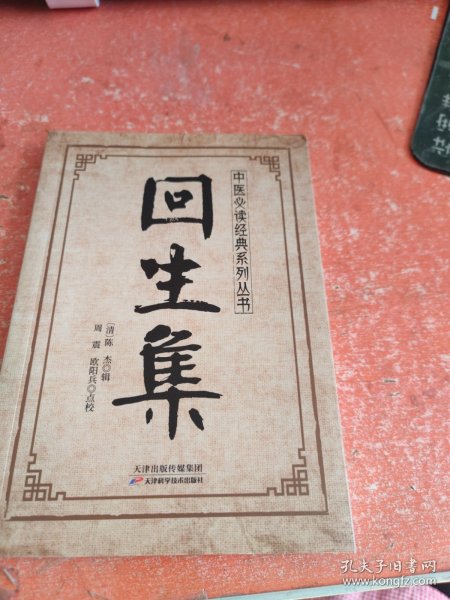 中医必读经典系列丛书
回生集
[清]陈 杰◎辑
周 震 欧阳兵◎点校
天津出版传媒集团
天津科学技术出版社
孔夫子旧书网
www.kongfz.com